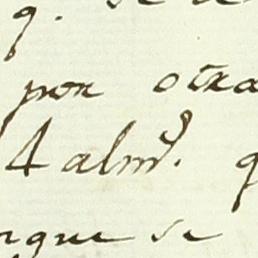 q. se
por otra
4 alm.^s q
rque se